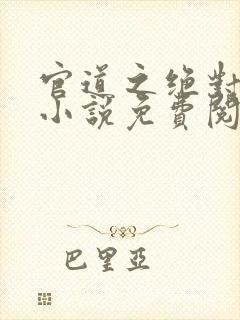 官道之绝對
小說免費閱
巴里亞